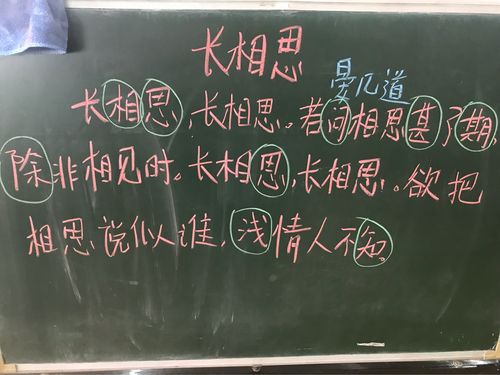 长相思
晏几道
长相思,长相思。若问相思甚了期,
除非相见时。长相思,长相思。欲把
相思说似谁,浅情人不知。